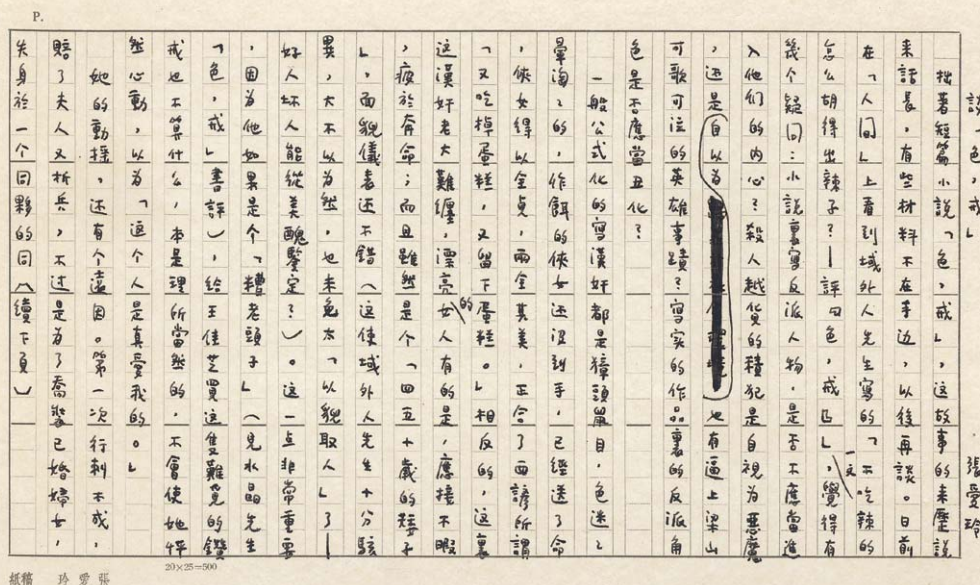 P.
談「色，戒」　張愛玲
拙著短篇小說「色，戒」，這故事的來歷說
來話長，有些材料不在手边，以後再談。日前
在「人间」上看到域外人先生寫的「不吃辣的
怎么胡得出辣子？—評『色，戒』」一文，覺得有
幾个疑问：小說裏寫反派人物，是否不應當進
入他们的内心？殺人越貨的積犯是自視為惡魔
，还是自以為也有逼上梁山
可歌可泣的英雄事蹟？寫实的作品裏的反派角
色是否應當丑化？
一般公式化的寫漢奸都是獐頭鼠目，色迷々
暈淘々的，作餌的俠女还沒到手，已經送了命
，俠女得以全貞，兩全其美，正合了西諺所謂
「又吃掉蛋糕，又留下蛋糕。」相反的，这裏
这漢奸老大難纏，漂亮的女人有的是，應接不暇
，疲於奔命；而且雖然是个「四五十歲的矮子
」，而貌儀表还不錯（这使域外人先生十分駭
異，大不以為然，也未免太「以貌取人」了—
好人坏人能從美醜鑒定？）。这一点非常重要
，因為他如果是个「糟老頭子」（見水晶先生
「色，戒」書評），給王佳芝買这隻難覓的鑽
戒也不算什么，本是理所當然的，不會使她怦
然心動，以為「这个人是真愛我的。」
她的動搖，还有个遠因。第一次行刺不成，
賠了夫人又折兵，不过是為了喬裝已婚婦女，
失身於一个同夥的同（續下頁）
20×25=500
紙稿 玲愛張